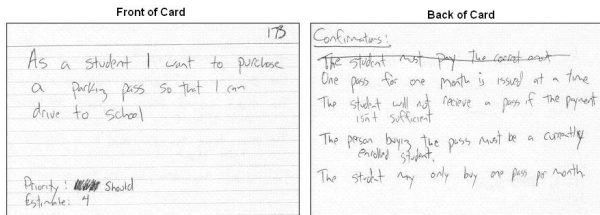 Front of Card
173
As a student I want to purchase
a parking pass so that I can
drive to school
Priority: Should
Estimate: 4
Back of Card
Confirmations:
The student must pay the correct amt
One pass for one month is issued at a time
The student will not recieve a pass if the payment
isn't sufficient
The person buying the pass must be a currently
enrolled student.
The student may only buy one pass per month.